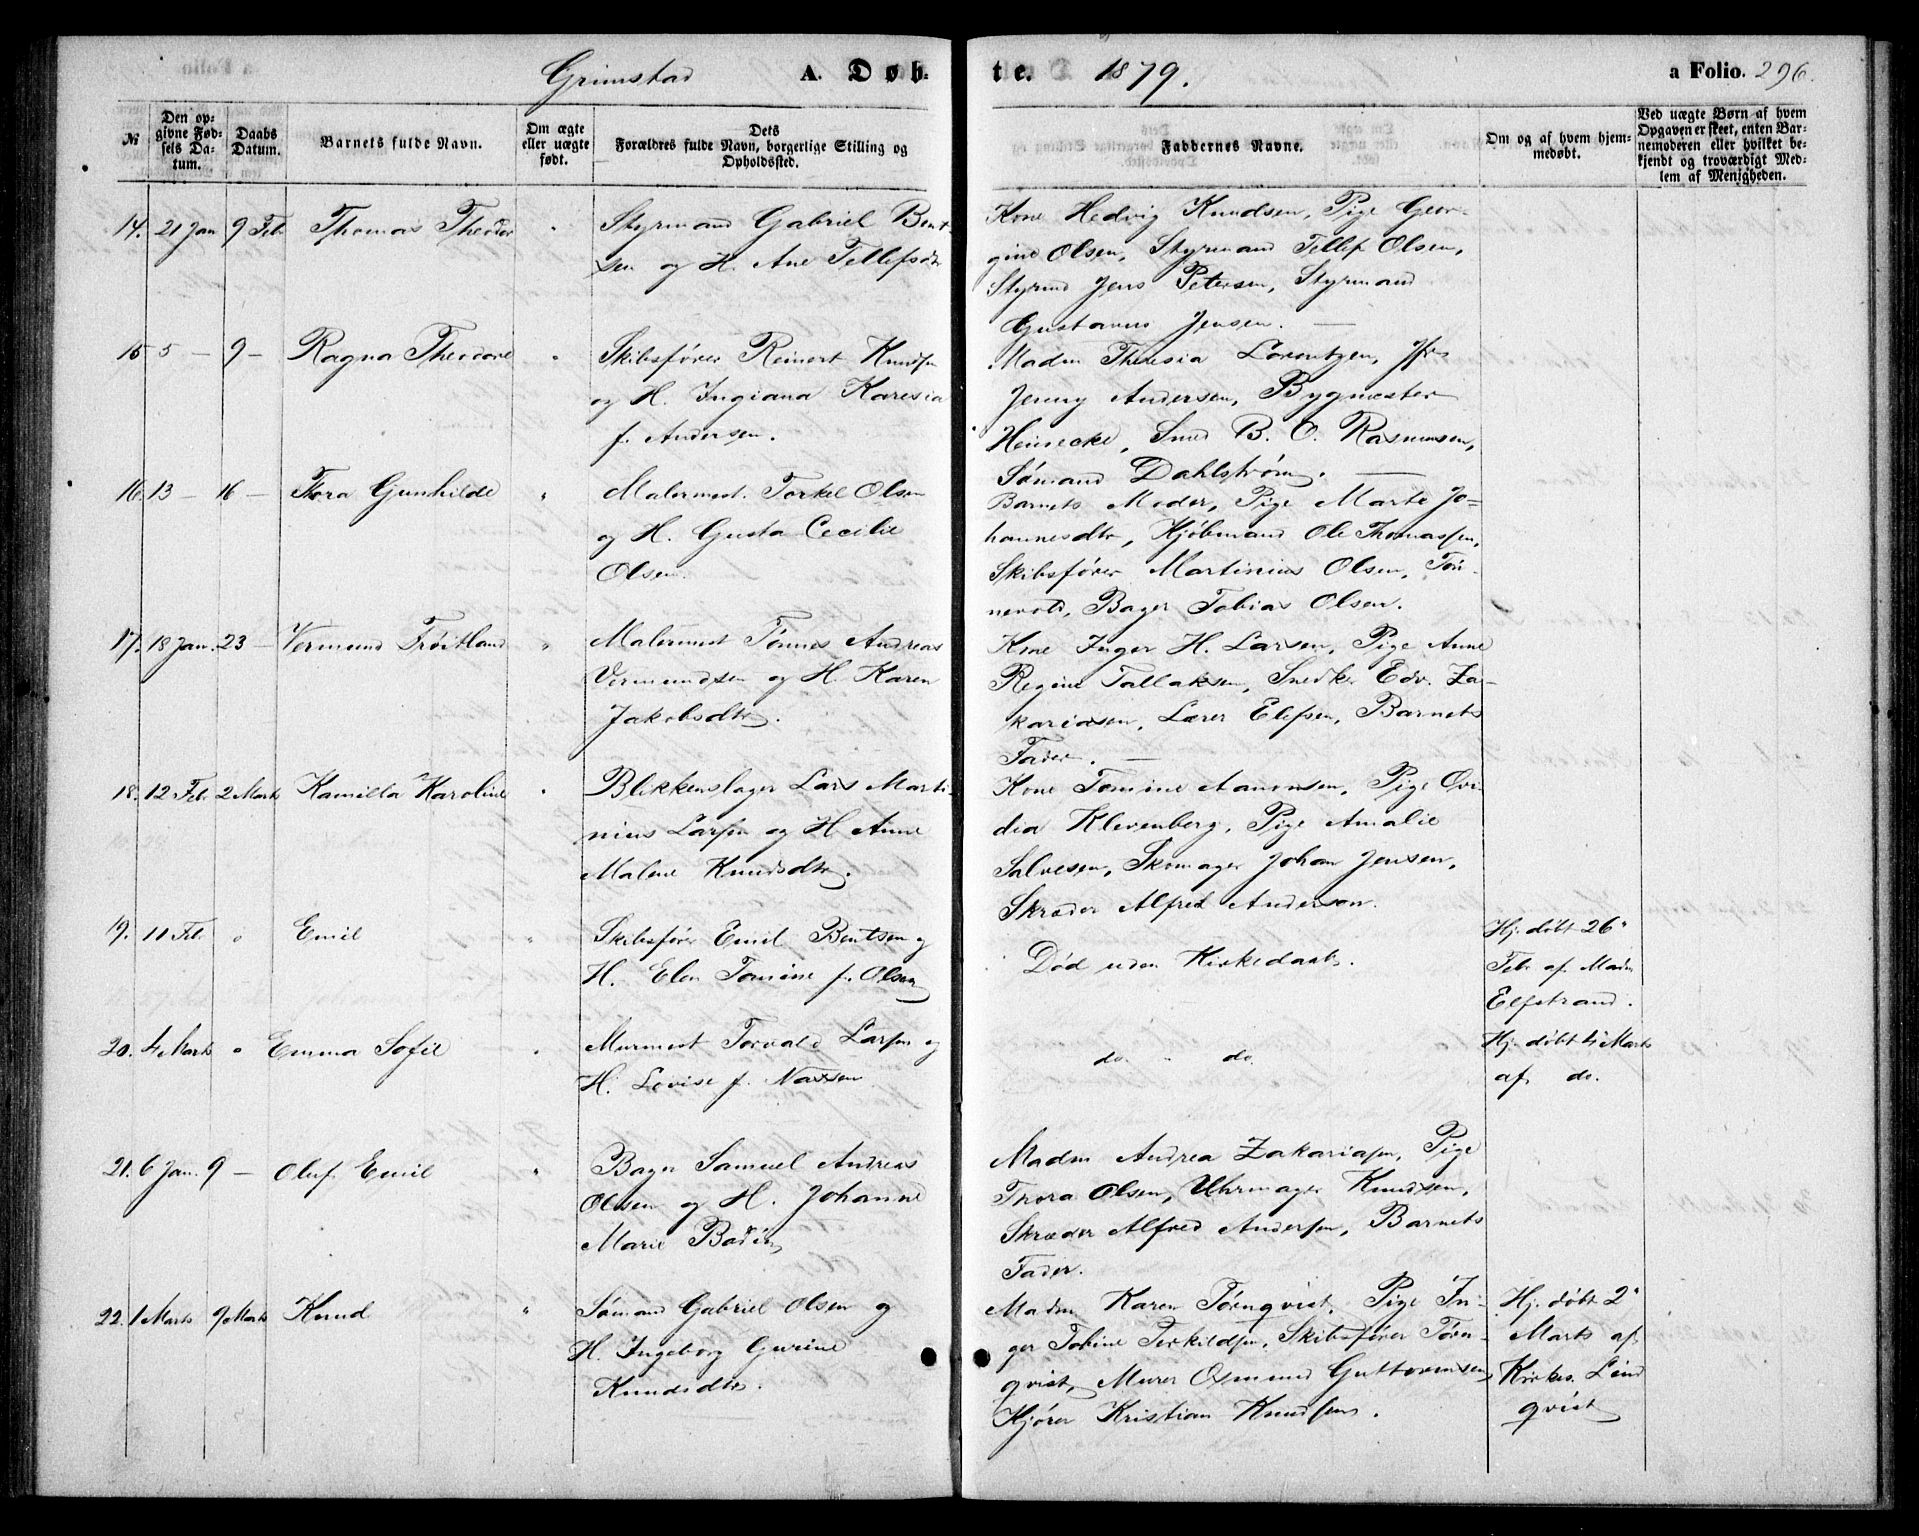 Grimstad A. Døb-
te. 1879. a Folio. 296.
№
Den op-
givne Fød-
sels Da-
tum.
Daabs
Datum.
Barnets fulde Navn.
Om ægte
eller uægte
født.
Dets
Forældres fulde Navn, borgerlige Stilling og
Opholdssted.
Faddernes Navne.
Om og af hvem hjem-
medøbt.
Ved uægte Børn af hvem
Opgaven er skeet, enten Bar-
nemoderen eller hvilket be-
kjendt og troværdigt Med-
lem af Menigheden.
14. 21 Jan 9 Febr Thomas Theodor "
Styrmand Gabriel Bent-
sen og H. Ane Tellefsdtr
Kone Hedvig Knudsen, Pige Geor-
gine Olsen, Styrmand Tellef Olsen,
Styrmd Jens Petersen, Styrmand
Gustavus Jensen. —
15 5 — 9 — Ragna Theodore "
Skibsfører Reinert Knudsen
og H. Ingiana Karesia
f. Andersen.
Madm Theresia Lorentzen, Jfr
Jenny Andersen, Bygmester
Heinecke, Smed B. O. Rasmussen,
Sømand Dahlstrøm. —
16. 13 — 16 — Thora Gunhilde "
Malermest. Torkel Olsen
og H. Gusta Cecilie
Olsen.
Barnets Moder, Pige Marte Jo-
hannesdtr, Kjøbmand Ole Thomassen,
Skibsfører Martinius Olsen, Tøn-
nevold, Bager Tobias Olsen.
17. 18 Jan. 23 — Vermund Trøitland "
Malermest Tønnes Andreas
Vermundsen og H. Karen
Jakobsdtr.
Kone Inger H. Larsen, Pige Anne
Regine Tallaksen, Snedker Edv. Za-
kariasen, Lærer Elefsen, Barnets
Fader. —
18. 12 Febr 2 Marts Kamilla Karoline "
Blikkenslager Lars Marti-
nius Larsen og H Anne
Malene Knudsdtr.
Kone Tomine Aanonsen, Pige Ovi-
dia Klevenberg, Pige Amalie
Salvesen, Skomager Johan Jensen,
Skræder Alfred Andersen.
19. 11 Febr " Emil "
Skibsfører Emil Bentsen og
H. Elen Tomine f. Olsen
Død uden Kirkedaab.
Hj. døbt 26"
Febr af Madm
Elfstrand.
20. 4 Marts " Emma Sofie "
Murmest Torvald Larsen og
H. Lovise f. Nassen
do. " do.
Hj. døbt 4 Marts
af do.
21. 6 Jan. 9 — Oluf Emil "
Bager Samuel Andreas
Olsen og H. Johanne
Marie Bodin
Madm Andrea Zakariasen, Pige
Thora Olsen, Uhrmager Knudsen,
Skræder Alfred Andersen, Barnets
Fader.
22. 1 Marts 9 Marts Knud "
Sømand Gabriel Olsen og
H. Ingeborg Gurine
Knudsdtr.
Madm Karen Tørnqvist, Pige In-
ger Tobine Terkildsen, Skibsfører Tørn-
qvist, Murer Osmund Guttormsen,
Kjører Kristian Knudsen.
Hj. døbt 2"
Marts af
Kirkes. Lind
qvist